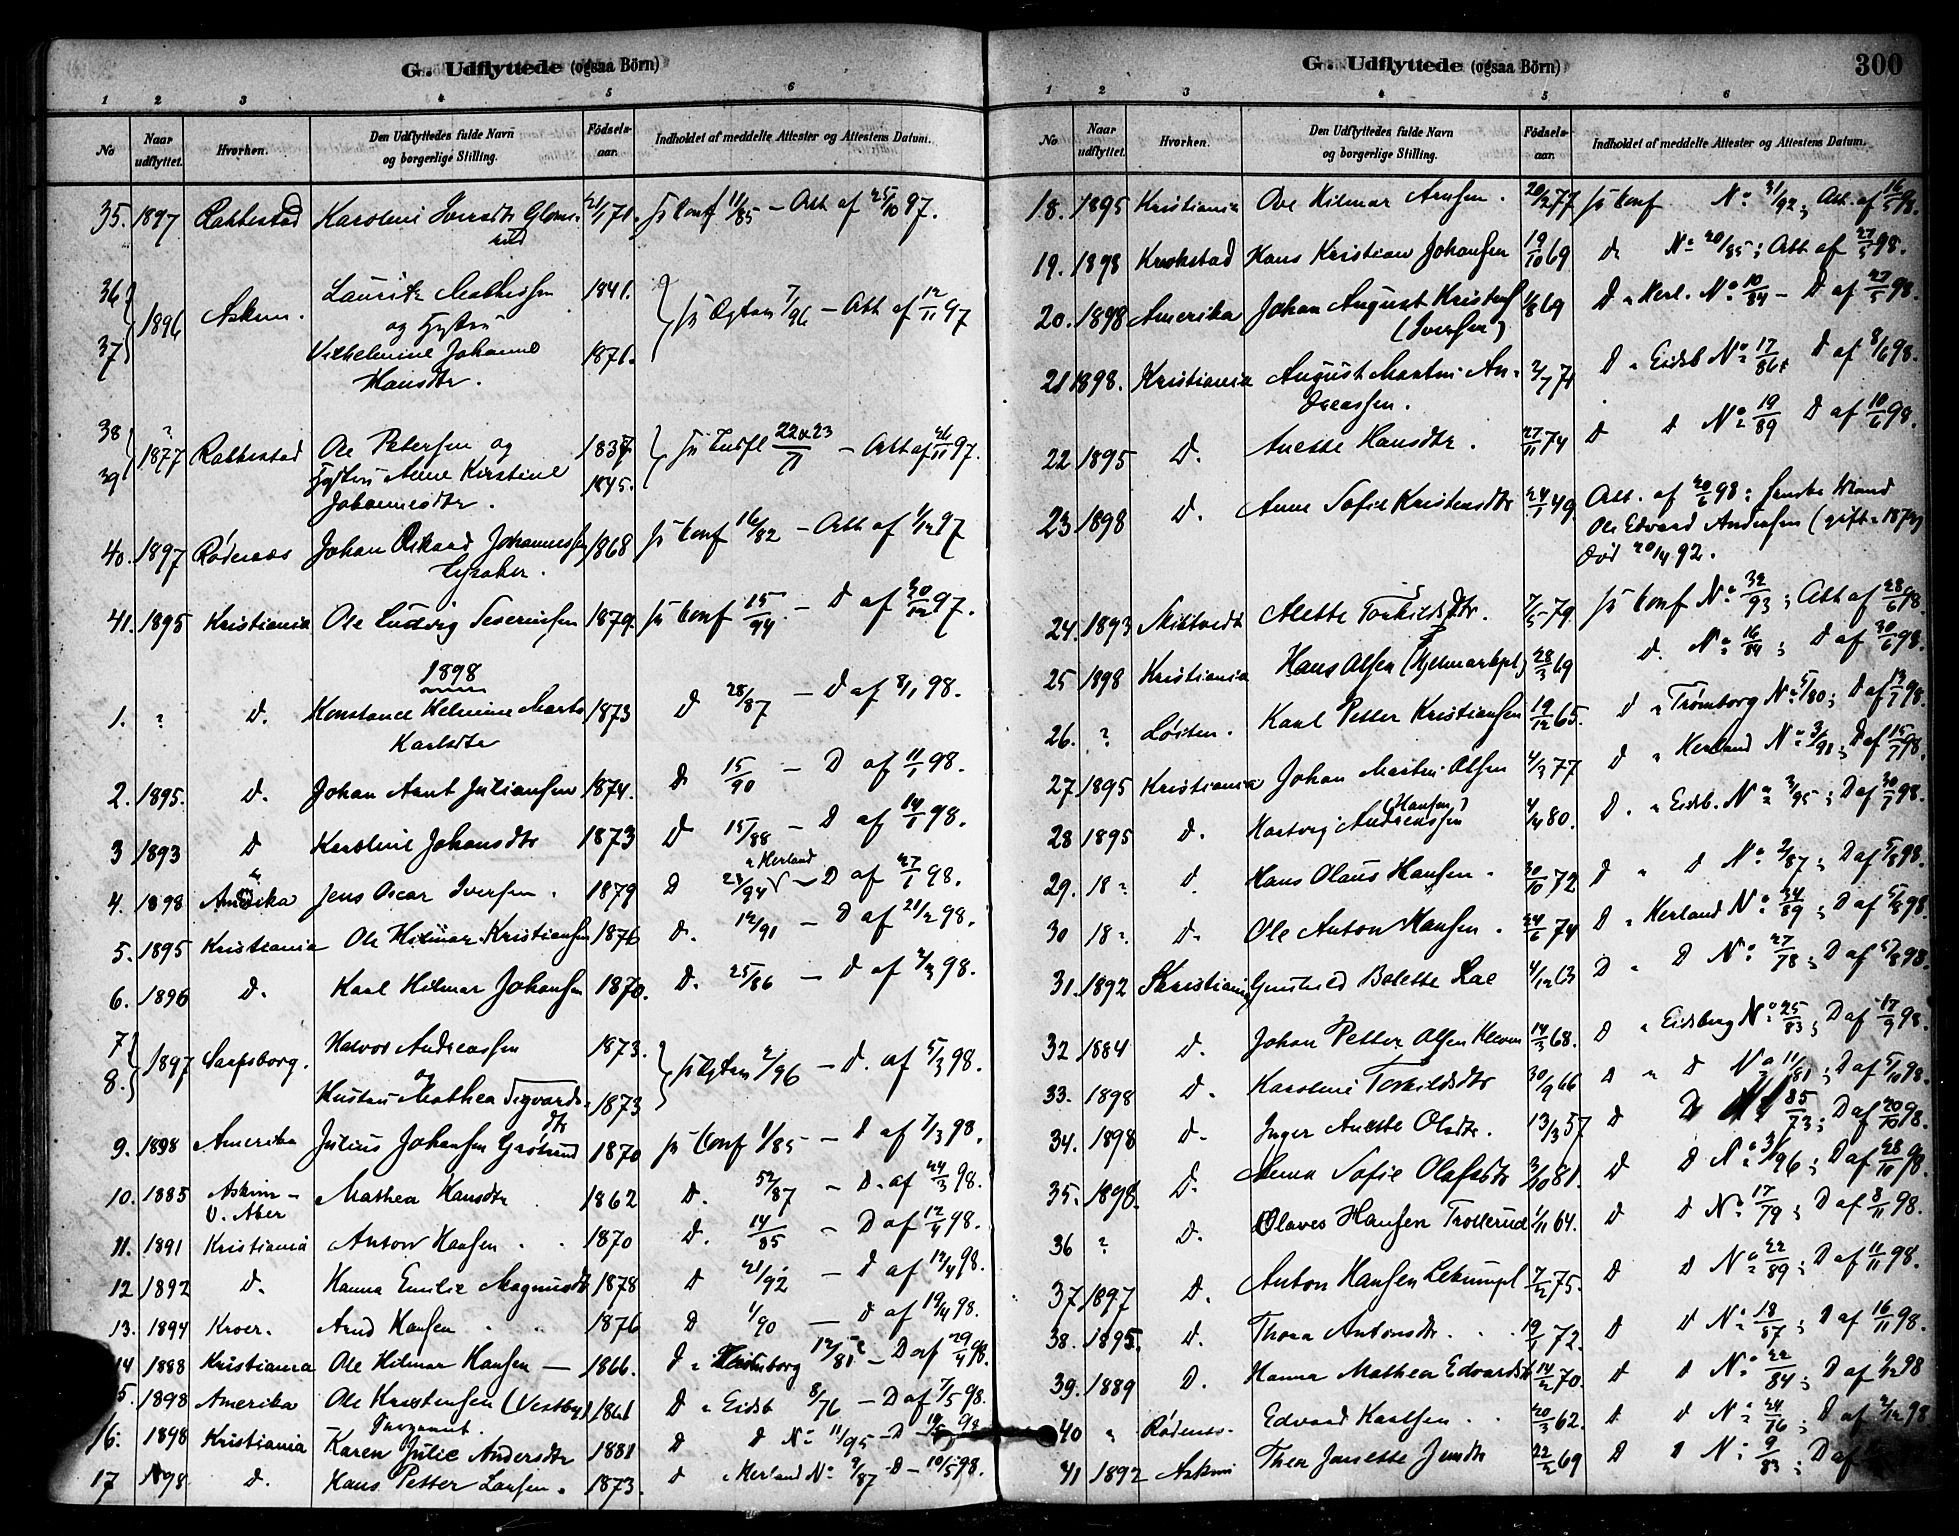 G. Udflyttede (ogsaa Börn)
1 2 3 4 5 6
No Naar udflyttet. Hvorhen. Den Udflyttedes fulde Navn og borgerlige Stilling. Fødsels-aar. Indholdet af meddelte Attester og Attestens Datum.
35. 1897 Rakkestad Karoline 21/1 71. Conf 11/85 – Att af 25/10 97.
36 1896 Askim. Lauritz Mathisen 1841. 7/96 – Att af 12/11 97
og Hustru
37 Vilhelmine Johanne 1871.
Hansdtr.
38 1877 ? Rakkestad Ole Petersen og 1837. Indfl 22&23/71 – Att af 26/11 97.
39 Hustru Anne Kirstine 1845.
Johannesdtr.
40. 1897 Rødenæs Johan Rikard Johannessen 1868 Conf 16/82 – Att af 1/12 97
41. 1895 Kristiania Ole Ludvig Severinsen 1879. Conf 15/94 – D af 30/12 97.
1898
1. ? D. Konstance Helmine Marte 1873 D 28/87 – D af 8/1 98.
Karlsdtr
2. 1895. D. Johan Aant Juliansen 1874. D 15/90 – D af 11/1 98.
3 1893 D Karoline Johansdtr 1873 D 15/88 – D af 14/1 98.
4. 1898 Amerika Jens Oscar Iversen. 1879 D 23/94 Herland – D af 27/1 98.
5. 1895 Kristiania Ole Hilmar Kristiansen 1876 D. 12/91 – D af 21/2 98.
6. 1896 D. Karl Hilmar Johansen 1870. D. 25/86 – D af 2/3 98.
7 1897 Sarpsborg. Halvor Andreassen 1873. 2/96 – D. af 5/3 98.
og
8. Hustru Mathea Sigvards- 1873
dtr
9. 1898 Amerika Julius Johansen 1870 Conf 1/85 – D af 7/3 98.
10. 1885 Askim – Mathea Hansdtr 1862 D. 52/87 – D. af 24/3 98.
V. Aker
11. 1891 Kristiania Anton Hansen 1870 D. 14/85 – D af 12/4 98.
12 1892 D. Hanna Emilie Magnusdtr 1878 D 21/92 – D af 12/4 98.
13. 1894 Kroer. Arnd Hansen 1876 D 1/90 – D af 19/4 98.
14 1888 Kristiania Ole Hilmar Hansen – 1866. D 12/81 – D af 29/4 98.
5. 1898 Amerika Ole Kristensen (Vestby) 1861 D Eidsb 8/76 – D af 7/5 98.
16. 1898 Kristiania Karen Julie Andersdtr 1881 D D No 11/95 – D
17 1898 D. Hans Petter Larsen. 1873. D Herland No 9/87 – D – 10/5 98.
G. Udflyttede (ogsaa Börn)
300
1 2 3 4 5 6
No Naar udflyttet. Hvorhen. Den Udflyttedes fulde Navn og borgerlige Stilling. Fødsels-aar. Indholdet af meddelte Attester og Attestens Datum.
18. 1895 Kristiania Ole Hilmar Arnsen. 20/2 77 Conf No 31/92; Att. af 16/5 98.
19. 1898 Krokstad Hans Kristian Johansen 19/10 69 D No 20/85; Att af 27/5 98.
20. 1898 Amerika Johan August Kristens 69 D Herl. No 10/84 – D af 27/5 98.
(Iversen)
21 1898. Kristiania August Martin An- 2/7 71 D Eidsb No 17/86 D af 8/6 98.
dreassen.
22 1895 D. Anette Hansdtr. 27/11 74 D D No 19/89 D af 10/6 98.
23 1898 D. Anne Sofie Kristensdtr 24/1 49. Att. af 20/6 98; Mand
Ole Edvard Andersen (gift
død 20/4 92.
24. 1893 Skiptvedt Alette Torkildsdtr. 7/5 79. Conf No 32/93; Att af 28/6 98.
25 1898 Kristiania Hans Olsen 28/3 69 D. No 16/84; D af 30/6 98.
26. ? Løiten. Karl Petter Kristiansen 19/12 65. D Trømborg No 5/80; D af 13/7 98.
27 1895 Kristiania Johan Martin Olsen 4/3 77 D Herland No 3/91; D af 15/7 98.
28 1895 D. Hartvig Andreassen (Hansen) 4/4 80. D. Eidsb. No 3/95; D af 30/7 98.
29. 18 ? D. Hans Olaus Hansen. 30/10 72 D D No 2/87; D af 5/8 98.
30 18 ? D. Ole Anton Hansen. 24/6 74 D Herland No 34/89; D af 5/8 98.
31. 1892 Kristiania Gunhild Bolette 4/12 63 D D No 27/78; D af 5/8 98.
32 1884 D. Johan Petter Olsen 14/3 68. D Eidsberg No 25/83; D af 17/9 98.
33. 1898 D. Karoline Torkildsdtr 30/9 66 D D No 11/81; D af 5/10 98.
34. 1898 D. Inger Anette Olsdtr. 13/3 57 D D 35/73; D af 20/10 98.
35. 1898. D. Anna Sofie Olafsdtr 3/10 81. D D No 3/96; D af 28/10 98.
36 ? D. Olaves Hansen Trollerud 1/11 64. D D No 17/79; D af 8/11 98.
37 1897 D. Anton Hansen 7/2 75. D D No 22/89; D af 11/11 98.
38. 1895. D. Thora Antonsdtr. 19/1 72. D D No 18/87; D af 16/11 98.
39. 1889 D. Hanna Mathea Edvardsdtr 14/2 70. D D No 22/84; D af 1/12 98
40 " Rødenes. Edvard Karlsen 20/3 62. D D No 24/76; D af 2/12 98
41 1892 Askim Thea Jensdtr 22/2 69 D D No 9/83; D af